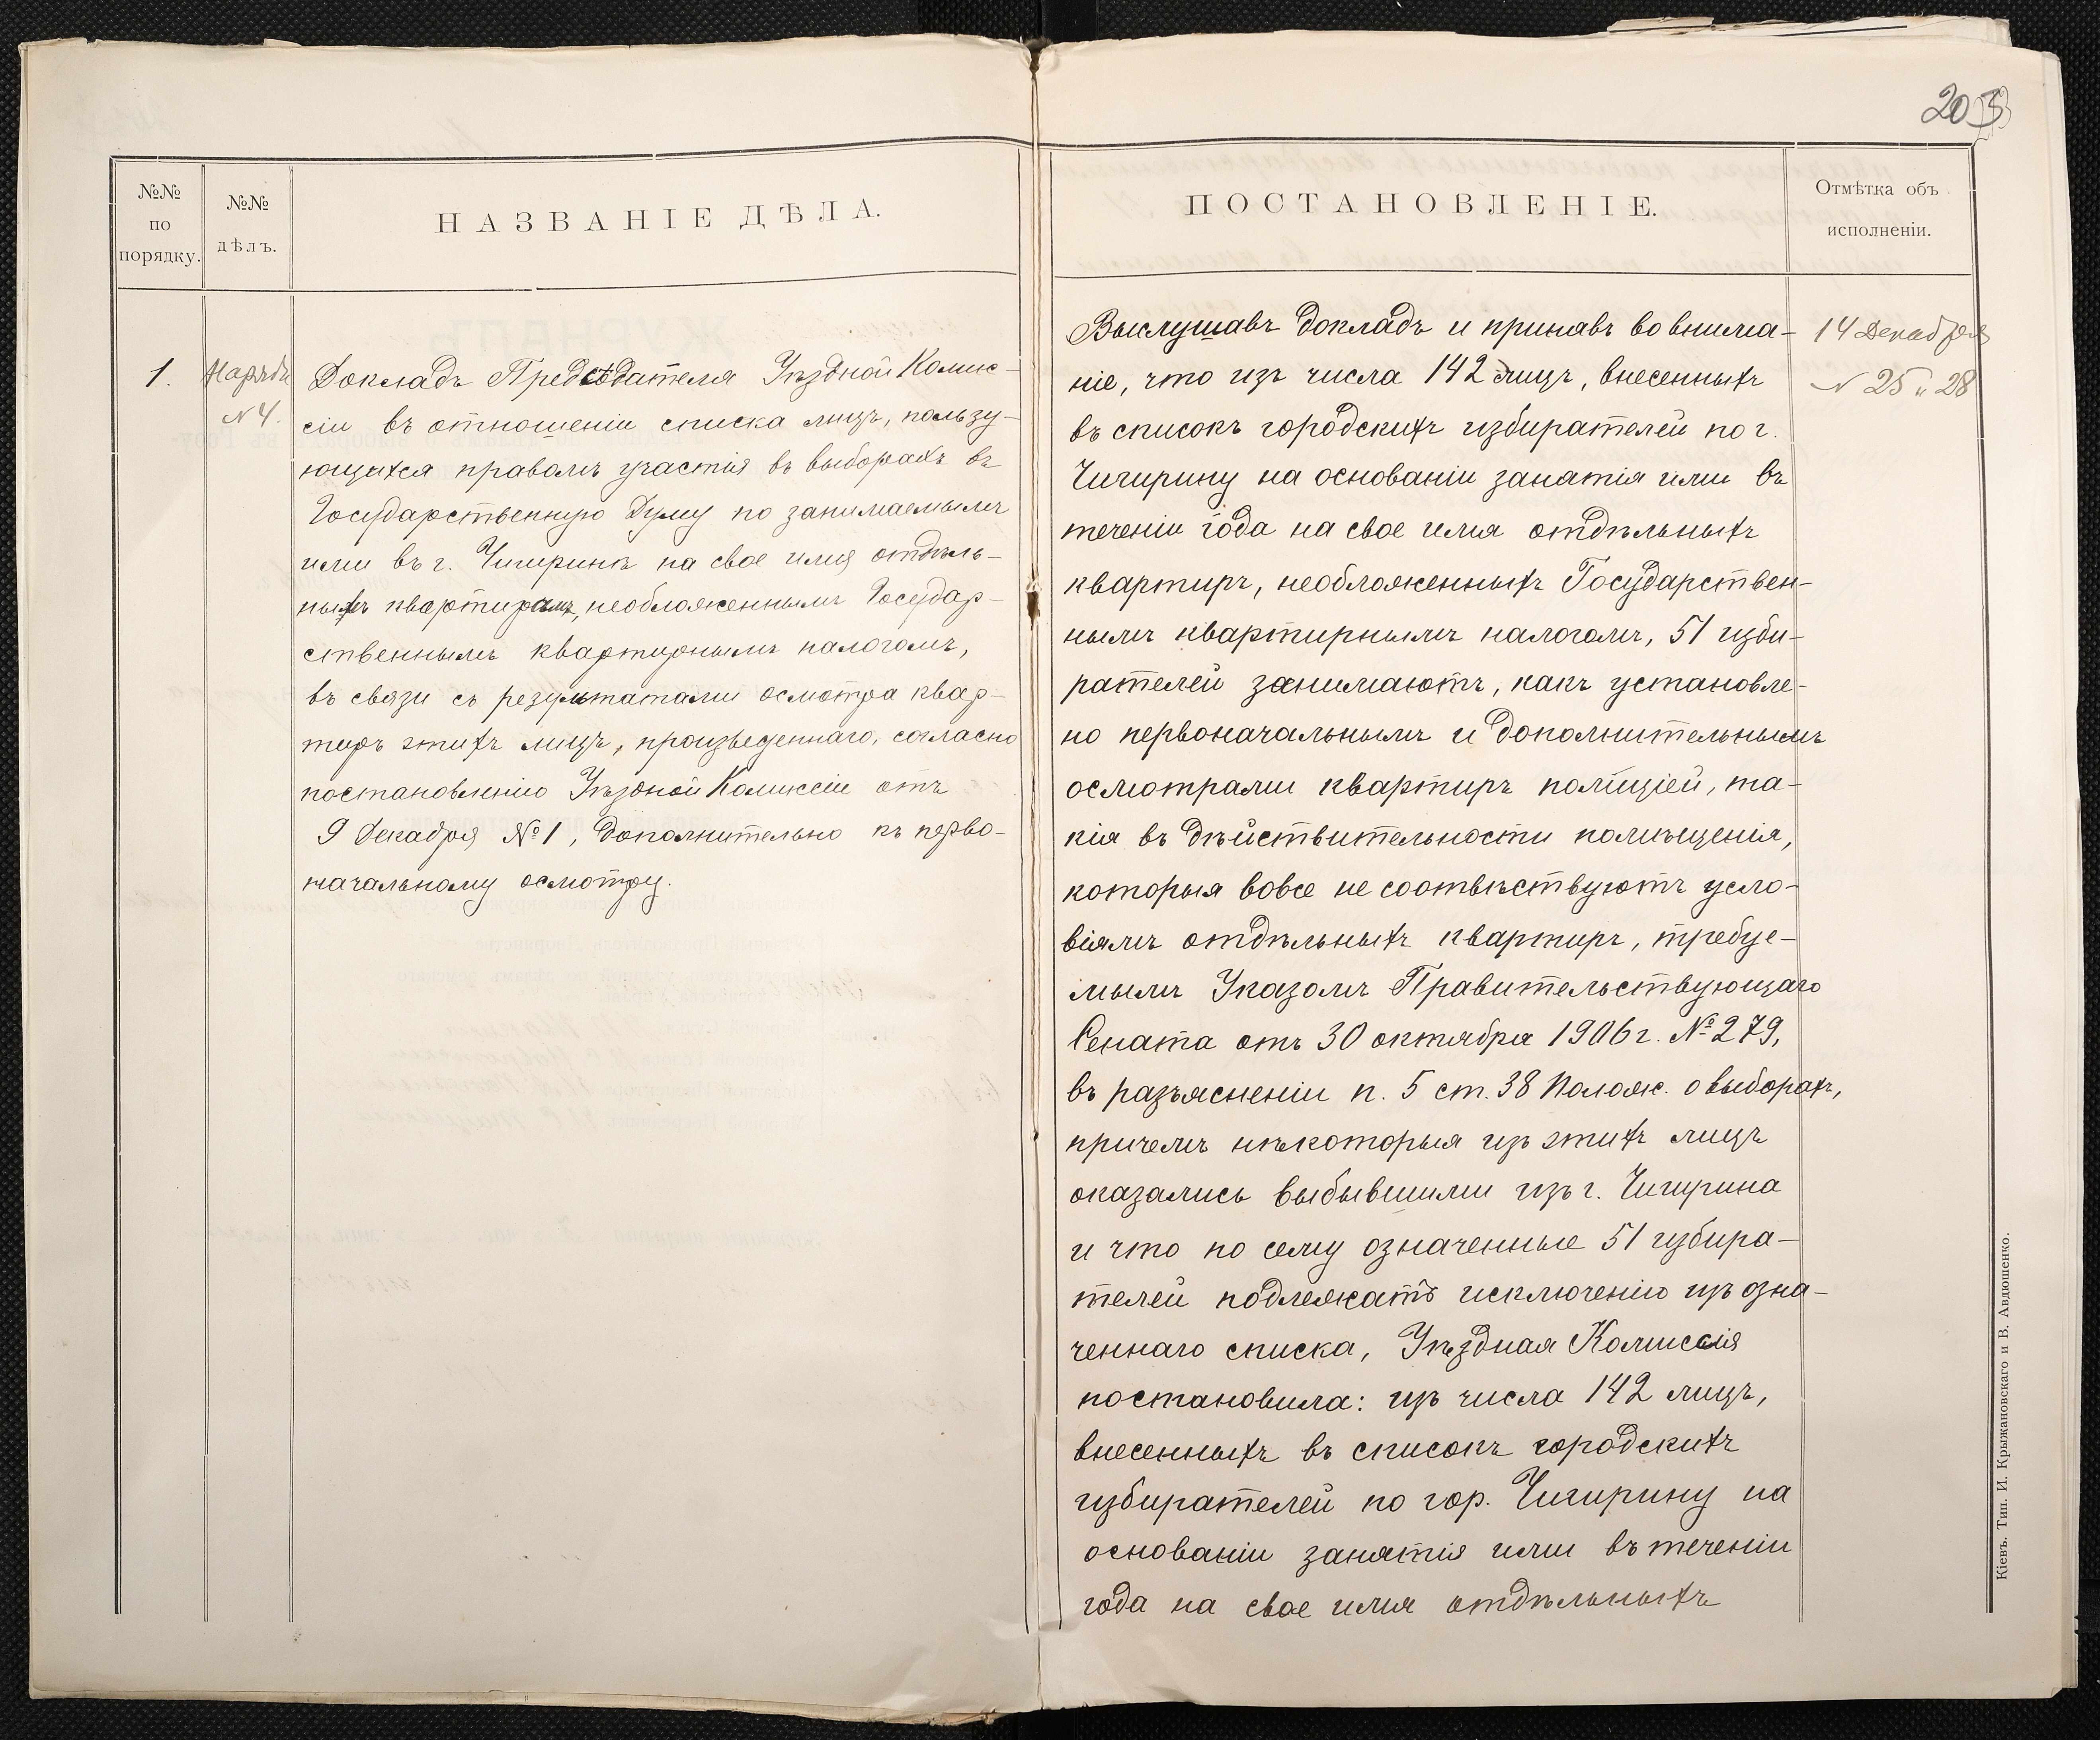 203
№№
по
порядку.
№№
дѣлъ.
НАЗВАНІЕ ДѢЛА.
1.
Нарядъ
№ 4.
Докладъ Предсѣдателя Уѣздной Комис-
сіи въ отношеніи списка лицъ, пользу-
ющихся правомъ участія въ выборахъ въ
Государственную Думу по занимаемымъ
ими въ г. Чигиринѣ на свое имя отдѣль-
нымъ квартирамъ, необложеннымъ Государ-
ственнымъ квартирнымъ налогомъ,
въ связи съ результатами осмотра квар-
тиръ этихъ лицъ, произведеннаго, согласно
постановленію Уѣздной Комиссіи отъ
9 Декабря № 1, дополнительно къ перво-
начальному осмотру.
ПОСТАНОВЛЕНІЕ.
Отмѣтка объ
исполненіи.
Выслушавъ докладъ и принявъ во внима-
ніе, что изъ числа 142 лицъ, внесенныхъ
въ списокъ городскихъ избирателей по г.
Чигирину на основаніи занятія ими въ
теченіи года на свое имя отдѣльныхъ
квартиръ, необложенныхъ Государствен-
нымъ квартирнымъ налогомъ, 51 изби-
рателей занимаютъ, какъ установле-
но первоначальнымъ и дополнительнымъ
осмотрами квартиръ полиціей, та-
кія въ дѣйствительности помѣщенія,
которыя вовсе не соотвѣствуютъ усло-
віямъ отдѣльныхъ квартиръ, требуе-
мымъ Указомъ Правительствующаго
Сената отъ 30 октября 1906 г. № 279,
въ разъясненіи п. 5 ст. 38 Полож. о выборахъ,
причемъ нѣкоторыя изъ этихъ лицъ
оказались выбывшими изъ г. Чигирина
и что по сему означенные 51 избира-
телей подлежатъ исключенію изъ озна-
ченнаго списка, Уѣздная Комиссія
постановила: изъ числа 142 лицъ,
внесенныхъ въ списокъ городскихъ
избирателей по гор. Чигирину на
основаніи занятія ими въ теченіи
года на свое имя отдѣльныхъ
14 Декабря
№ 25 и 28
Кіевъ. Тип. И. Крыжановскаго и В. Авдюшенко.